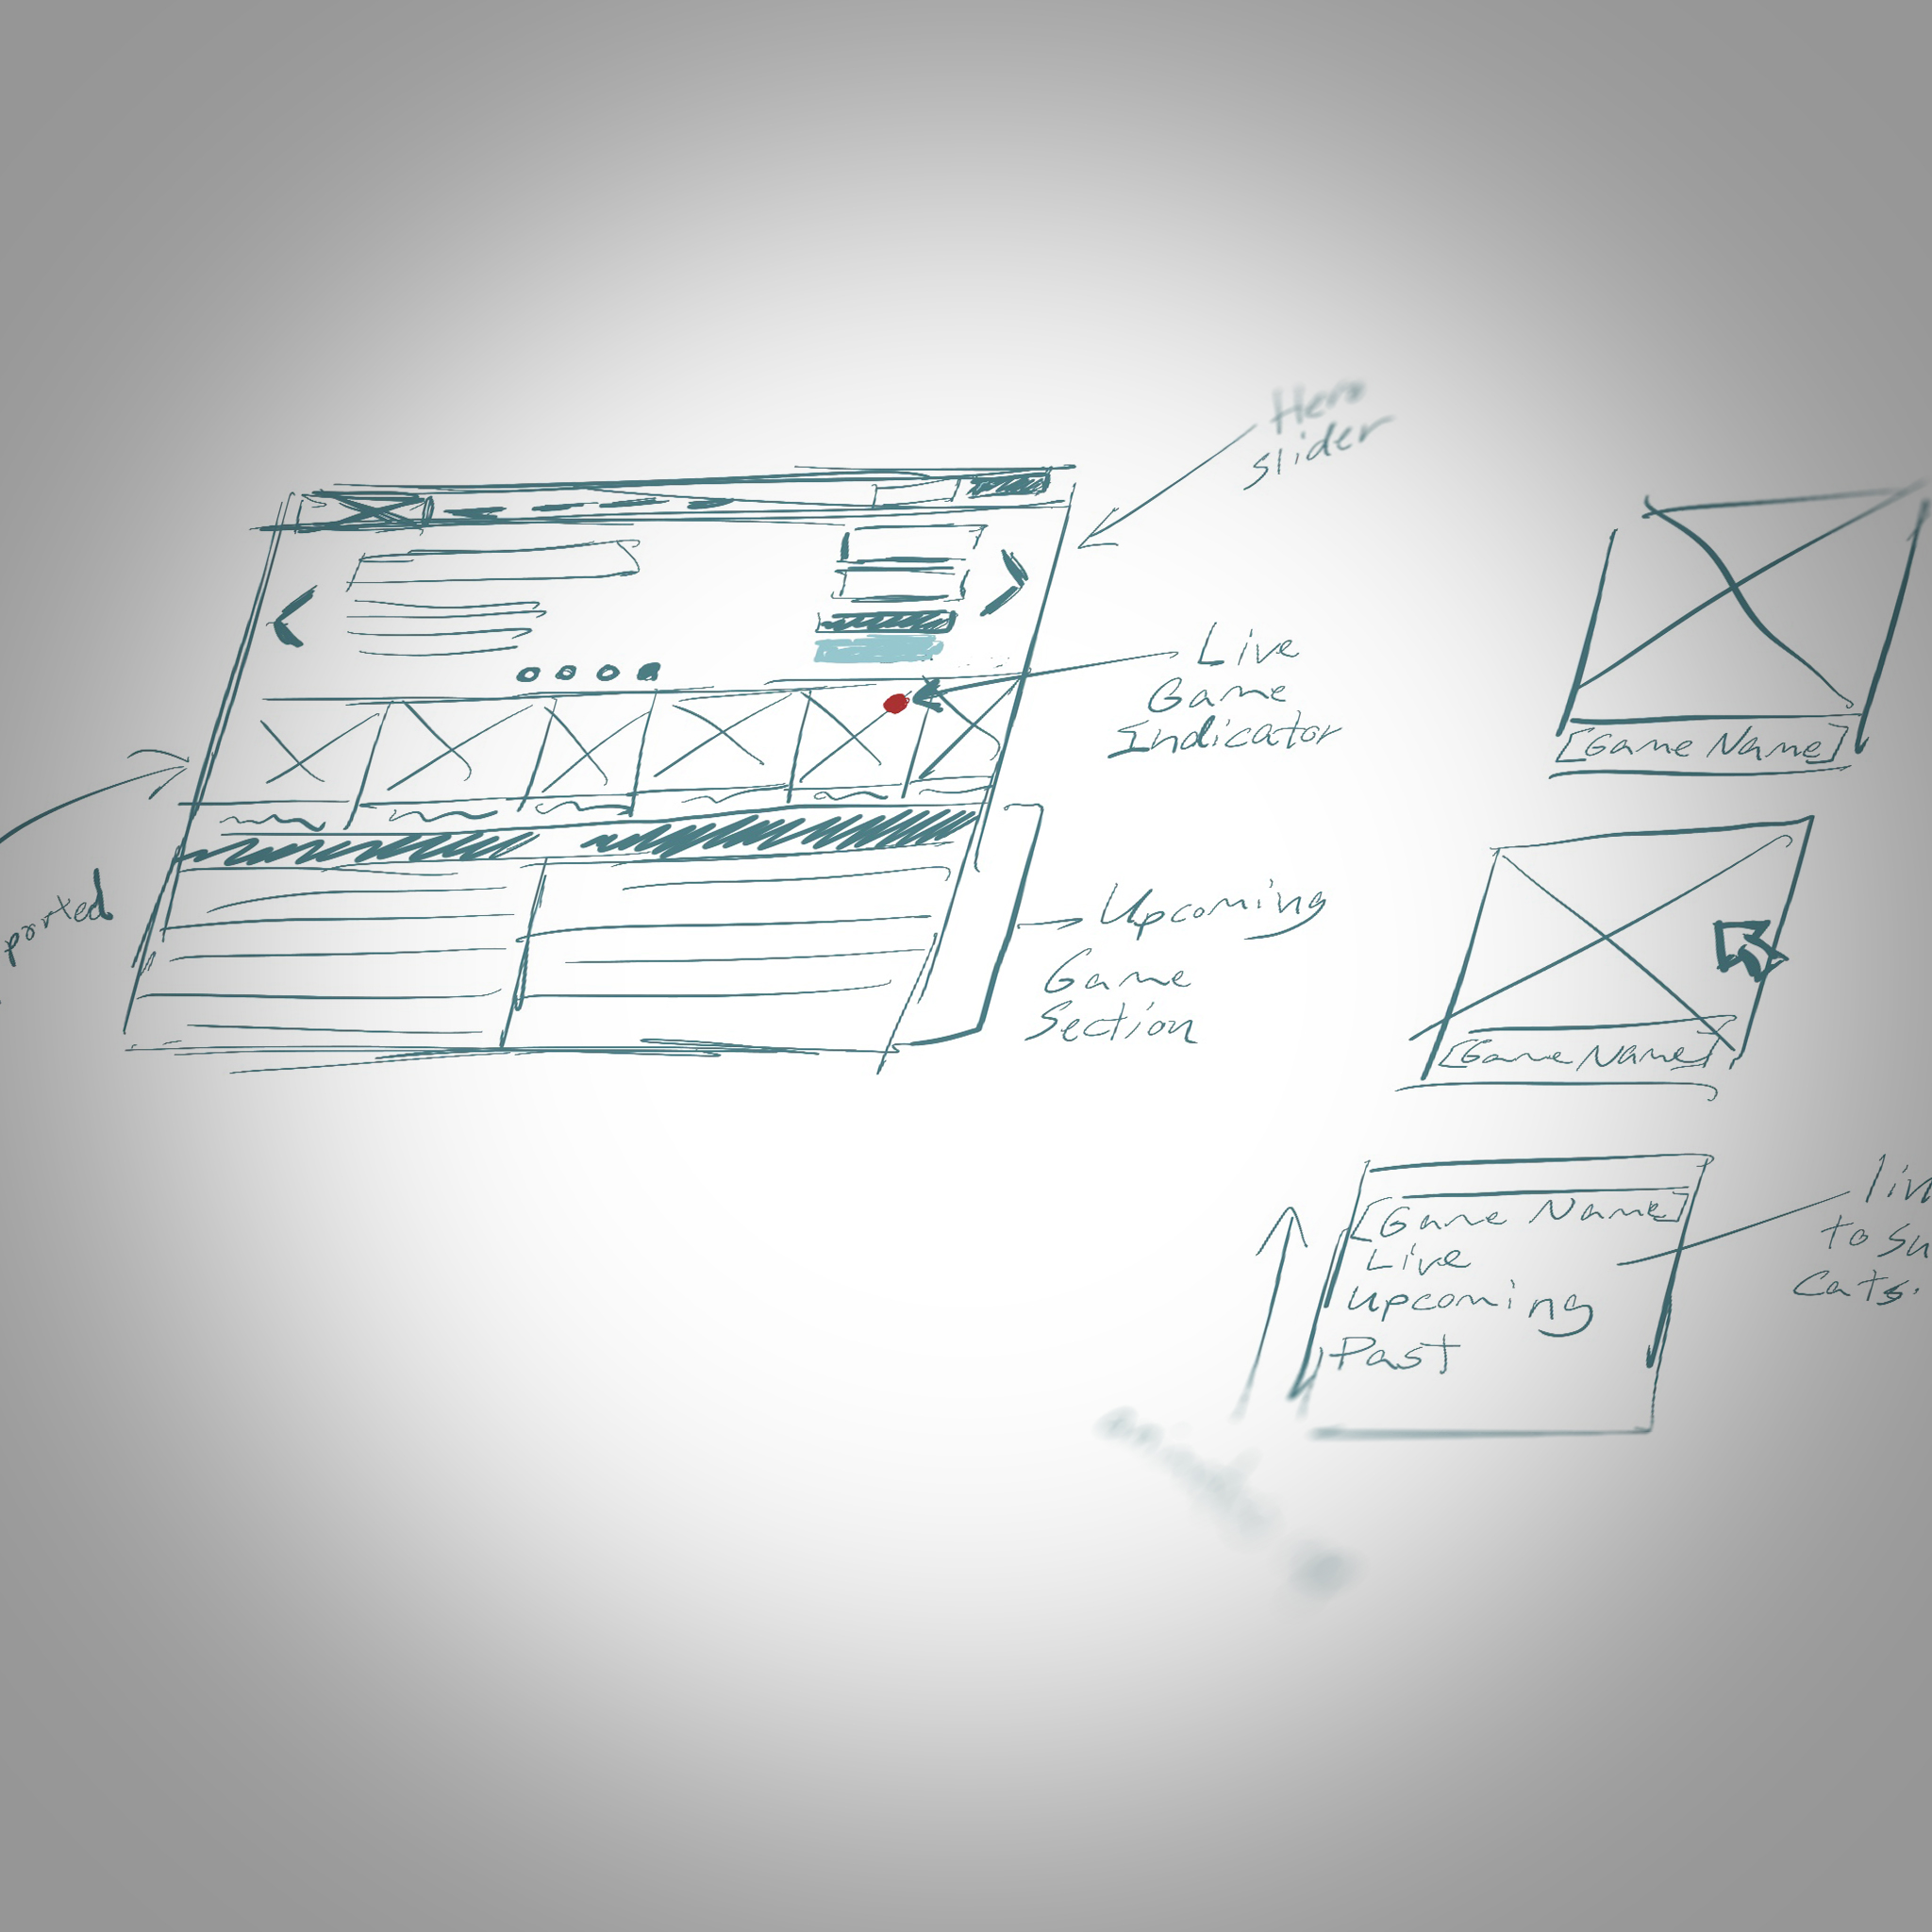 Hero
slider
Live
Game
Indicator
ported
Upcoming
Game
Section
[Game Name]
[Game Name]
[Game Name]
Live
Upcoming
Past
to su
Cats.